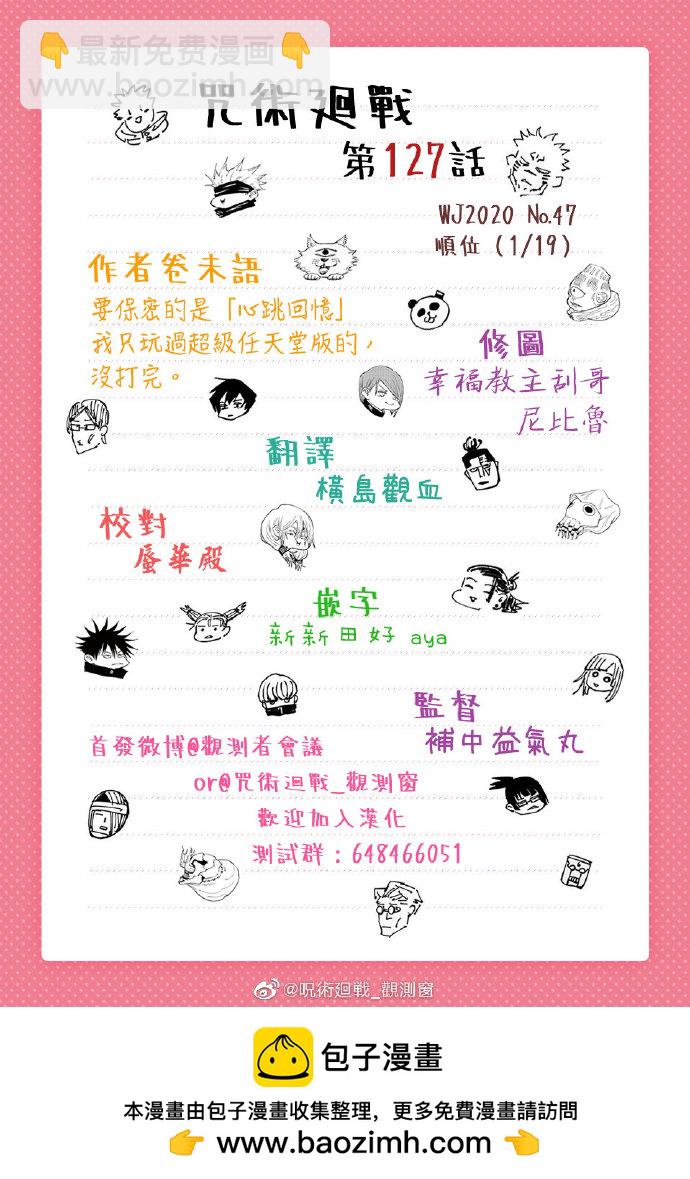 最新免费漫画
www.baozimh.com
咒術廻戰
第127話
WJ2020 No.47
順位（1/19）
作者卷末語
要保密的是「心跳回憶」
我只玩過超級任天堂版的，
沒打完。
修圖
幸福教主刮哥
尼比魯
翻譯
橫島觀血
校對
蜃華殿
嵌字
新新田好 aya
監督
補中益氣丸
首發微博@觀測者會議
or@咒術迴戰_觀測窗
歡迎加入漢化
測試群：648466051
@呪術廻戦_觀測窗
包子漫畫
本漫畫由包子漫畫收集整理，更多免費漫畫請訪問
www.baozimh.com